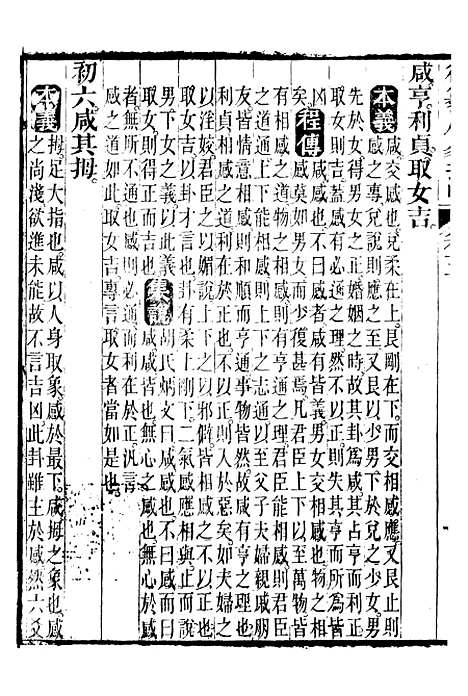 咸亨。利貞。取女吉。
本義
咸交感也。兌柔在上。艮剛在下。而交相感應。又艮止則
感之專。兌說則應之至。又艮以少男下於兌之少女。男
先於女。得男女之正。婚姻之時。故其卦爲咸。其占亨而利正。
取女則吉。蓋感有必通之理。然不以正。則失其亨。而所爲皆
凶
矣。
程傳
咸感也。不曰感者。咸有皆義。男女交相感也。物之相
感莫如男女。而少復甚焉。凡君臣上下。以至萬物。皆
有相感之道。物之相感。則有亨通之理。君臣能相感。則君臣
之道通。上下能相感。則上下之志通。以至父子夫婦親戚朋
友。皆情意相感。則和順而亨通。事物皆然。故咸有亨之理也。
利貞。相感之道。利在於正也。不以正。則入於惡矣。如夫婦之
以淫姣。君臣之以媚說。上下之以邪僻。皆相感之不以正也。
取女吉。以卦才言也。卦有柔上剛下。二氣感應。相與止而說。
男下女之義。以此義
取女。則得正而吉也。
集說
胡氏炳文曰。咸感也。不曰感
咸。咸皆也。無心之感也。無心於感
者。無所不通也。感則必通。而利在於正。汎言
感之道如此。取女吉。專言取女者當如是也。
初六咸其拇。
本義
拇足大指也。咸以人身取象。感於最下。咸拇之象也。感
之尚淺。欲進未能。故不言吉凶。此卦雖主於感。然六爻